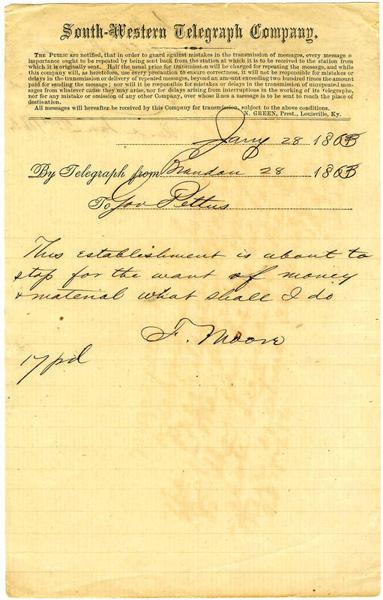 South-Western Telegraph Company.
The Public are notified, that in order to guard against mistakes in the transmission of messages, every message of
importance ought to be repeated by being sent back from the station at which it is to be received to the station from
which it is originally sent. Half the usual price for transmission will be charged for repeating the message, and while
this company will, as heretofore, use every precaution to ensure correctness, it will not be responsible for mistakes or
delays in the transmission or delivery of repeated messages, beyond an amount exceeding two hundred times the amount
paid for sending the message; nor will it be responsible for mistakes or delays in the transmission of unrepeated messages
from whatever cause they may arise, nor for delays arising from interruptions in the working of its Telegraphs,
nor for any mistake or omission of any other Company, over whose lines a message is to be sent to reach the place of
destination.
All messages will hereafter be received by this Company for transmission, subject to the above conditions.
N. GREEN, Prest., Louisville, Ky.
Jany 28 1863
By Telegraph from Brandon 28 1863
To Gov Pettus
This establishment is about to
stop for the want of money
& material what shall I do
F. Moore
17 pd